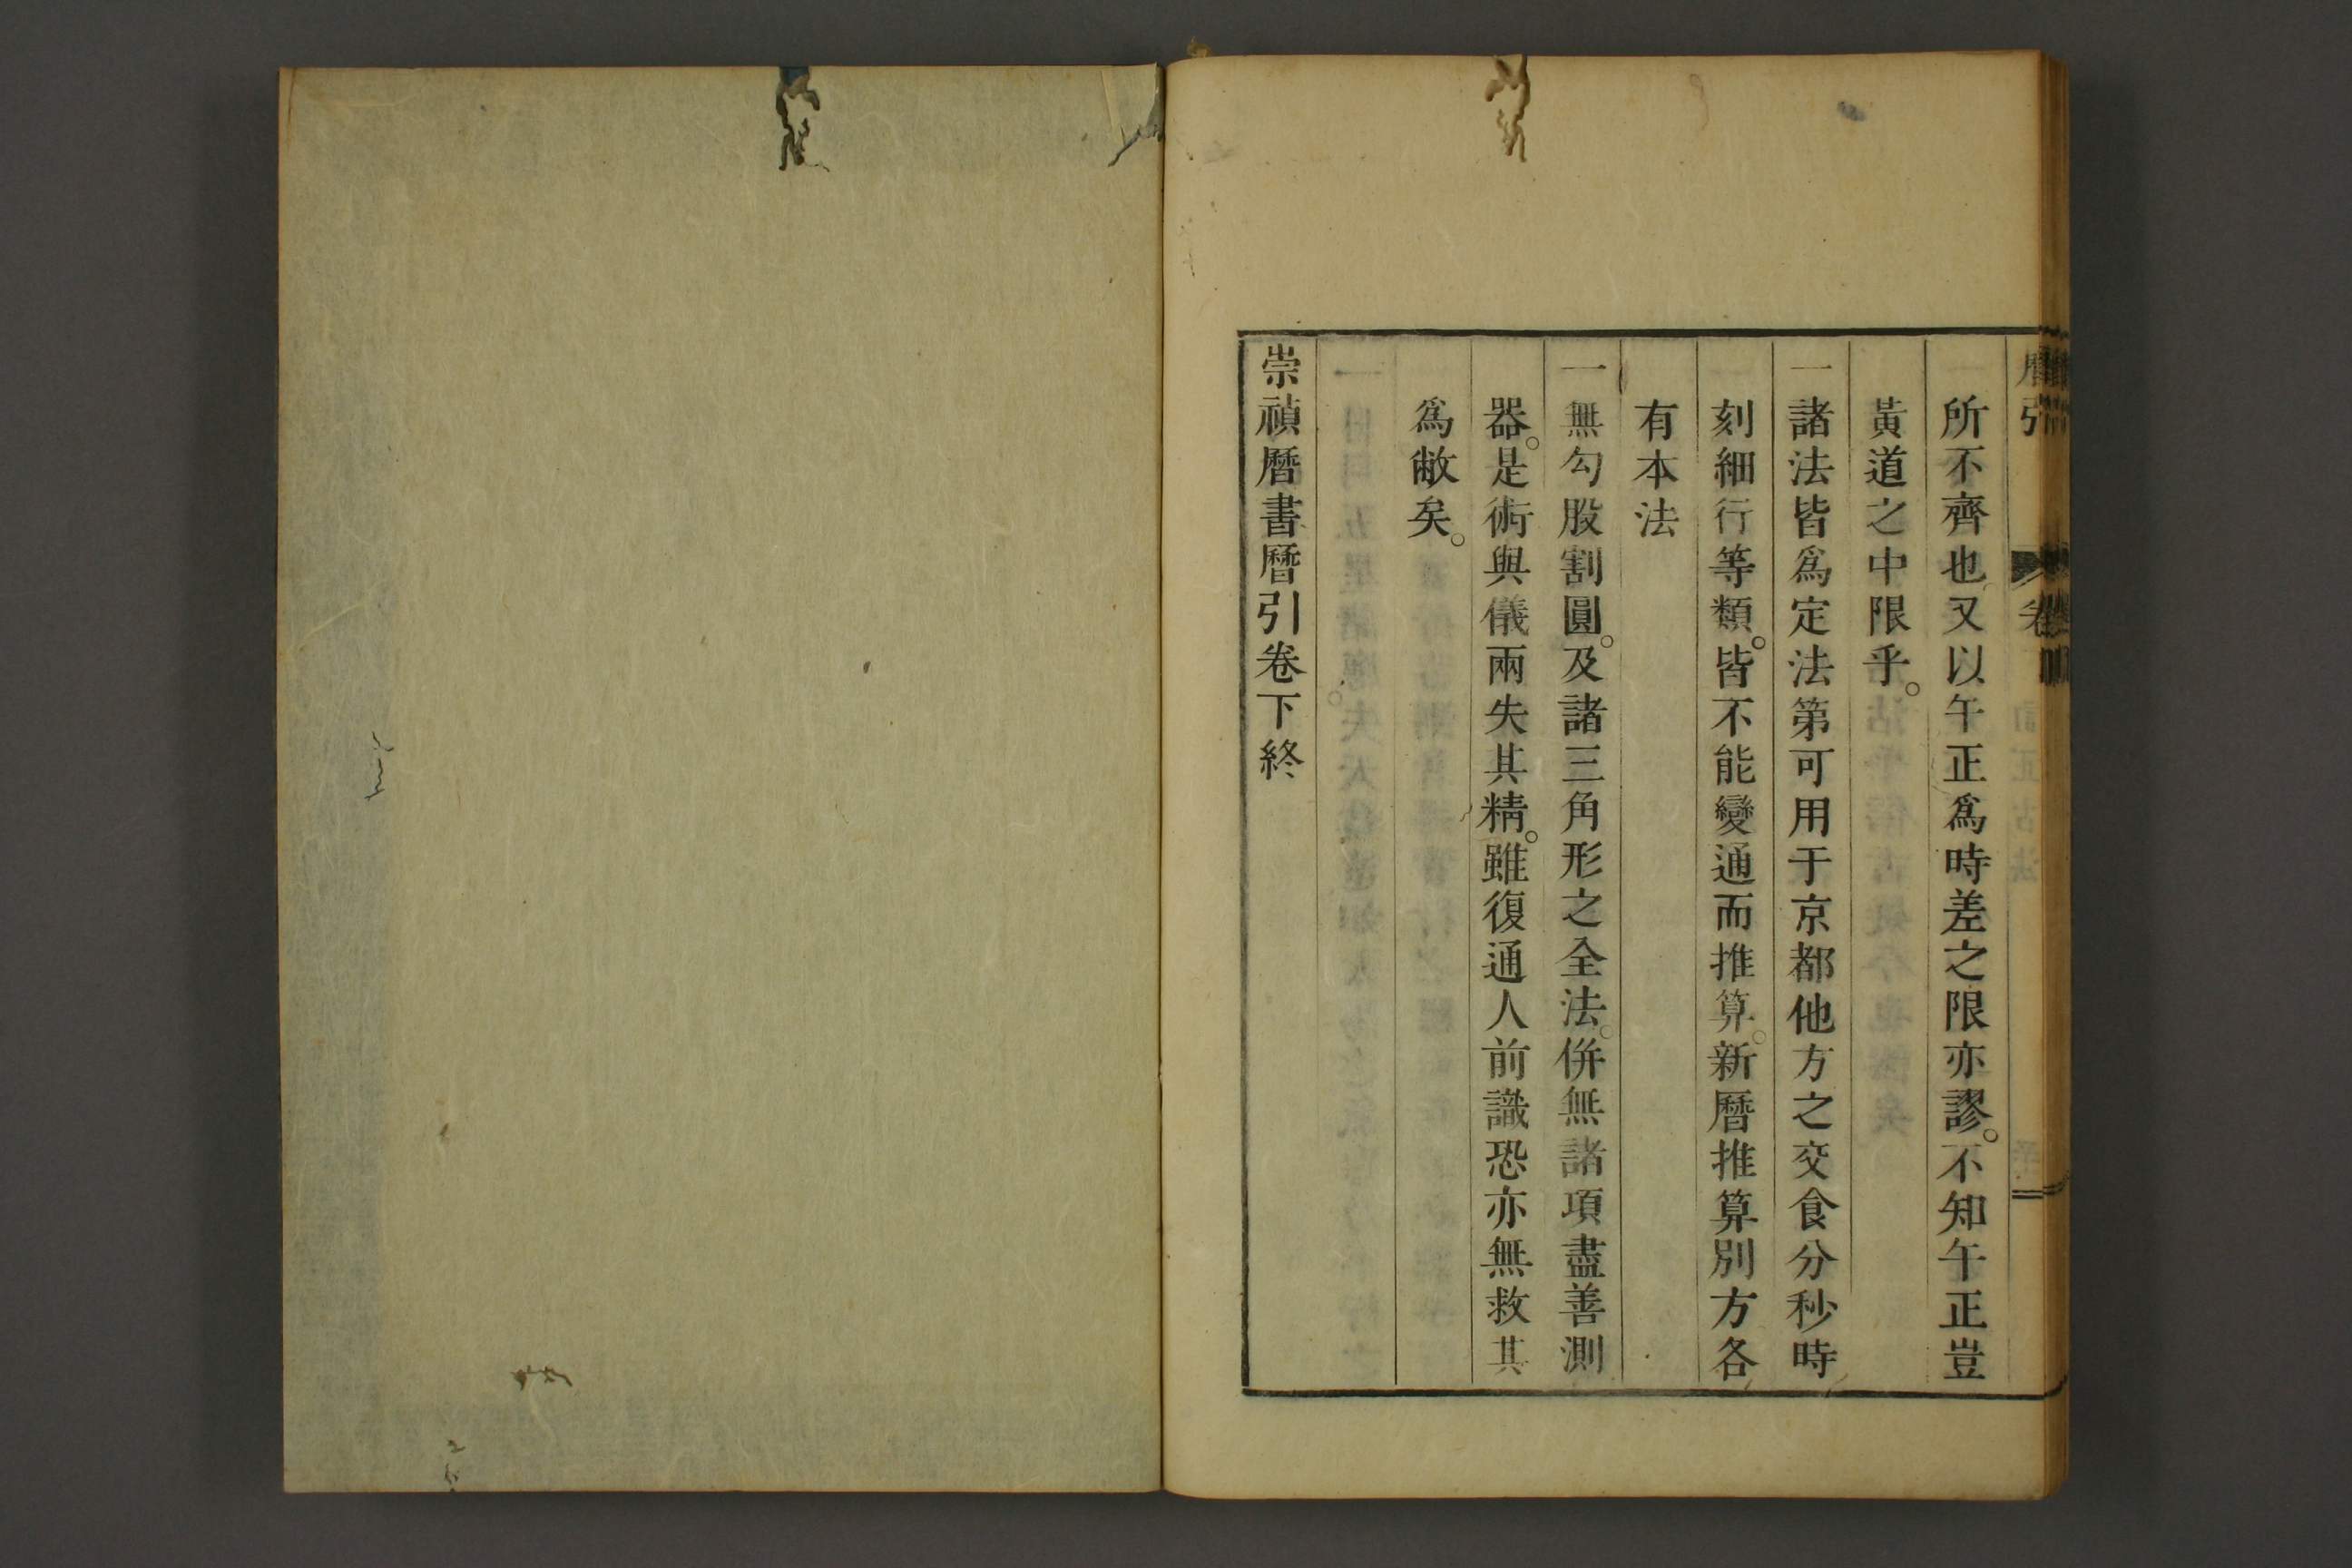 所不齊也又以午正爲時差之限亦謬。不知午正豈
黃道之中限乎。
一諸法皆爲定法第可用于京都他方之交食分秒時
刻細行等類。皆不能變通而推算。新曆推算別方各
有本法
一無勾股割圓。及諸三角形之全法。併無諸項盡善測
器。是術與儀兩失其精。雖復通人前識恐亦無救其
爲敝矣。
崇禎曆書曆引卷下終